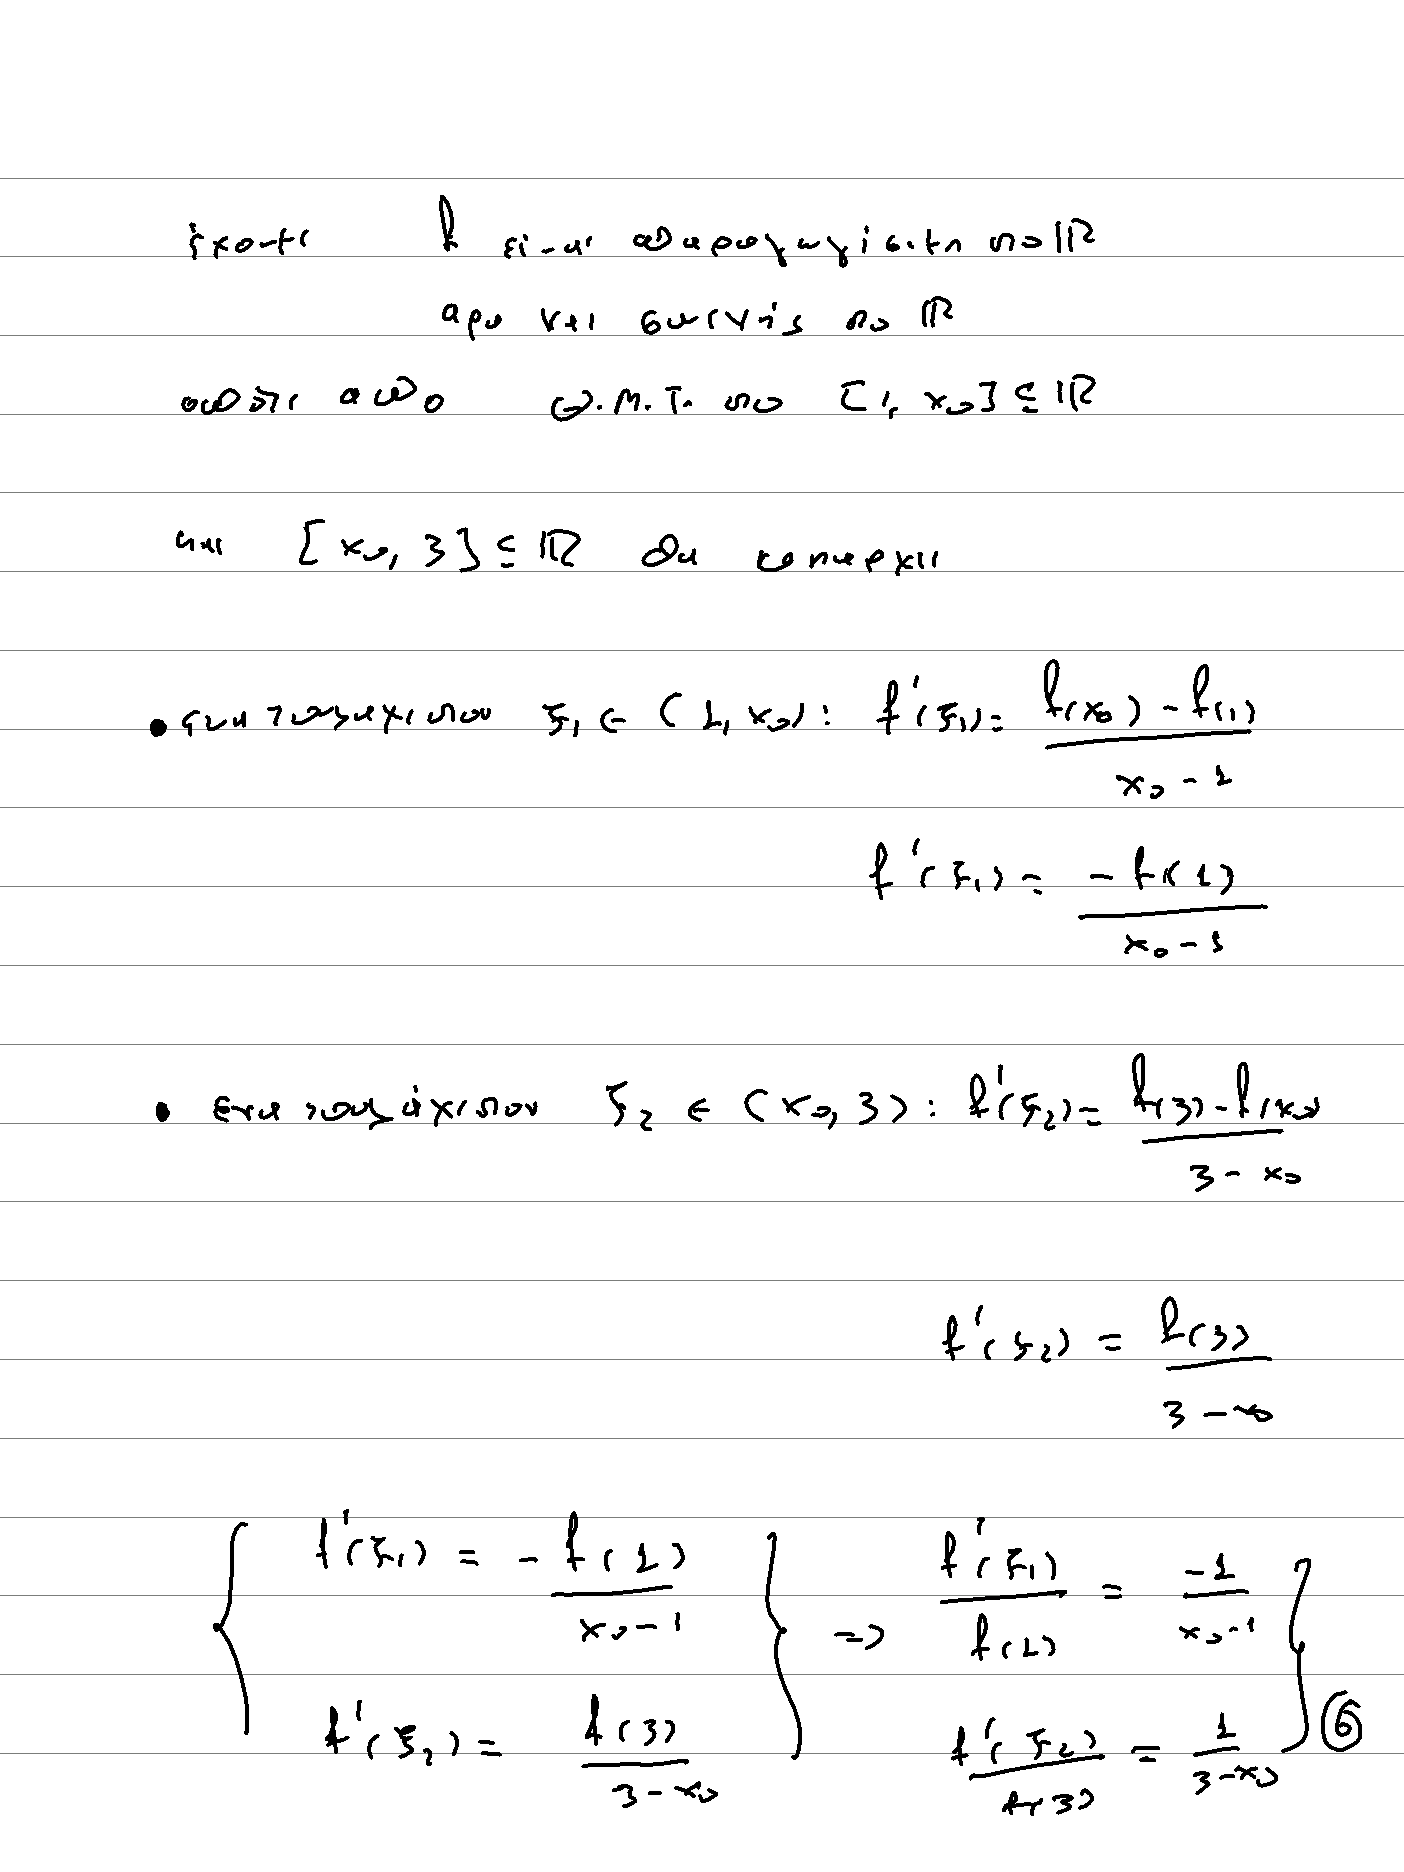 έχουμε f είναι παραγωγίσιμη στο ℝ
άρα και συνεχής στο ℝ
οπότε από Θ.Μ.Τ. στο [1, x₀] ⊆ ℝ
και [x₀, 3] ⊆ ℝ θα υπάρχει
• ένα τουλάχιστον ξ₁ ∈ (1, x₀): f'(ξ₁) = (f(x₀) - f(1)) / (x₀ - 1)
f'(ξ₁) = -f(1) / (x₀ - 1)
• ένα τουλάχιστον ξ₂ ∈ (x₀, 3): f'(ξ₂) = (f(3) - f(x₀)) / (3 - x₀)
f'(ξ₂) = f(3) / (3 - x₀)
{ f'(ξ₁) = -f(1) / (x₀ - 1) } => f'(ξ₁) / f(1) = -1 / (x₀ - 1) }
f'(ξ₂) = f(3) / (3 - x₀) f'(ξ₂) / f(3) = 1 / (3 - x₀) ⑥